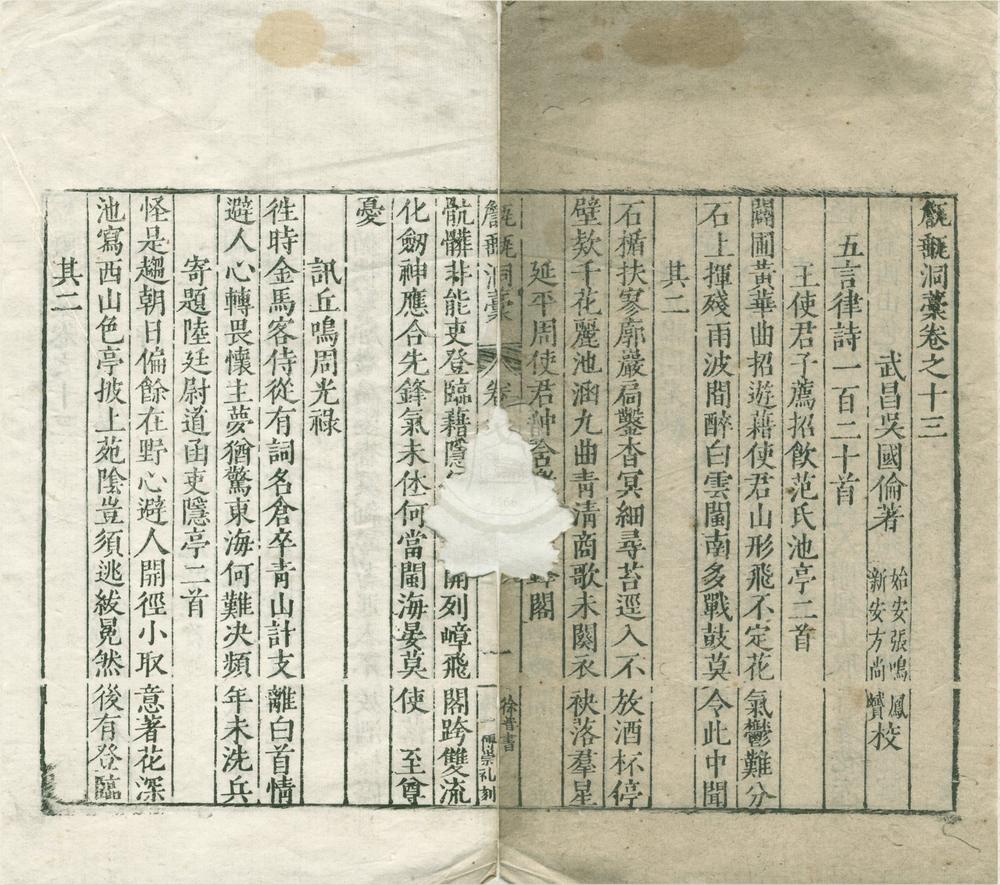 甔甀洞藁卷之十三
武昌吳國倫著
始安張鳴鳳
新安方尚贇校
五言律詩一百二十首
王使君子薦招飲范氏池亭二首
闢圃黃華曲招遊藉使君山形飛不定花氣鬱難分
石上揮殘雨波間醉白雲閩南多戰鼓莫令此中聞
其二
石楯扶寥廓巖扃鑿杳冥細尋苔逕入不放酒杯停
壁欸千花麗池涵九曲青清商歌未闋衣袂落羣星
延平周使君 閣
甔甀洞藁 卷 一 徐普書 刻
骯髒非能吏登臨藉隱 開列嶂飛閣跨雙流
化劒神應合先鋒氣未休何當閩海晏莫使 至尊
憂
訊丘鳴周光祿
徃時金馬客侍從有詞名倉卒青山計支離白首情
避人心轉畏懷主夢猶驚東海何難决頻年未洗兵
寄題陸廷尉道函吏隱亭二首
怪是趨朝日偏餘在野心避人開徑小取意著花深
池寫西山色亭披上苑陰豈須逃紱冕然後有登臨
其二